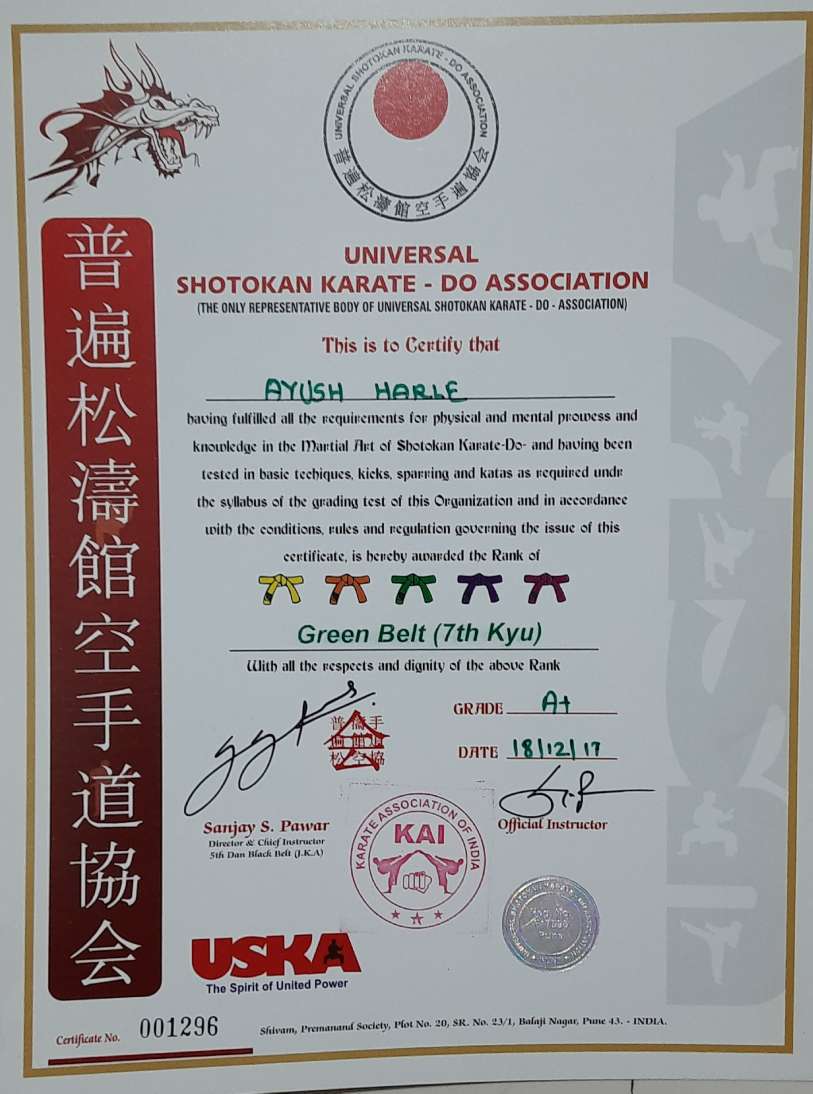 UNIVERSAL SHOTOKAN KARATE - DO ASSOCIATION
普遍松濤館空手遍協会
普遍松濤館空手道協会
UNIVERSAL
SHOTOKAN KARATE - DO ASSOCIATION
(THE ONLY REPRESENTATIVE BODY OF UNIVERSAL SHOTOKAN KARATE - DO - ASSOCIATION)
This is to Certify that
AYUSH HARLE
having fulfilled all the requirements for physical and mental prowess and
knowledge in the Martial Art of Shotokan Karate-Do- and having been
tested in basic techiques, kicks, sparring and katas as required undr
the syllabus of the grading test of this Organization and in accordance
with the conditions, rules and regulation governing the issue of this
certificate, is hereby awarded the Rank of
Green Belt (7th Kyu)
With all the respects and dignity of the above Rank
GRADE A+
DATE 18/12/17
Sanjay S. Pawar
Director & Chief Instructor
5th Dan Black Belt (J.K.A)
Official Instructor
KARATE ASSOCIATION OF INDIA
KAI
USKA
The Spirit of United Power
Certificate No. 001296
Shivam, Premanand Society, Plot No. 20, SR. No. 23/1, Balaji Nagar, Pune 43. - INDIA.